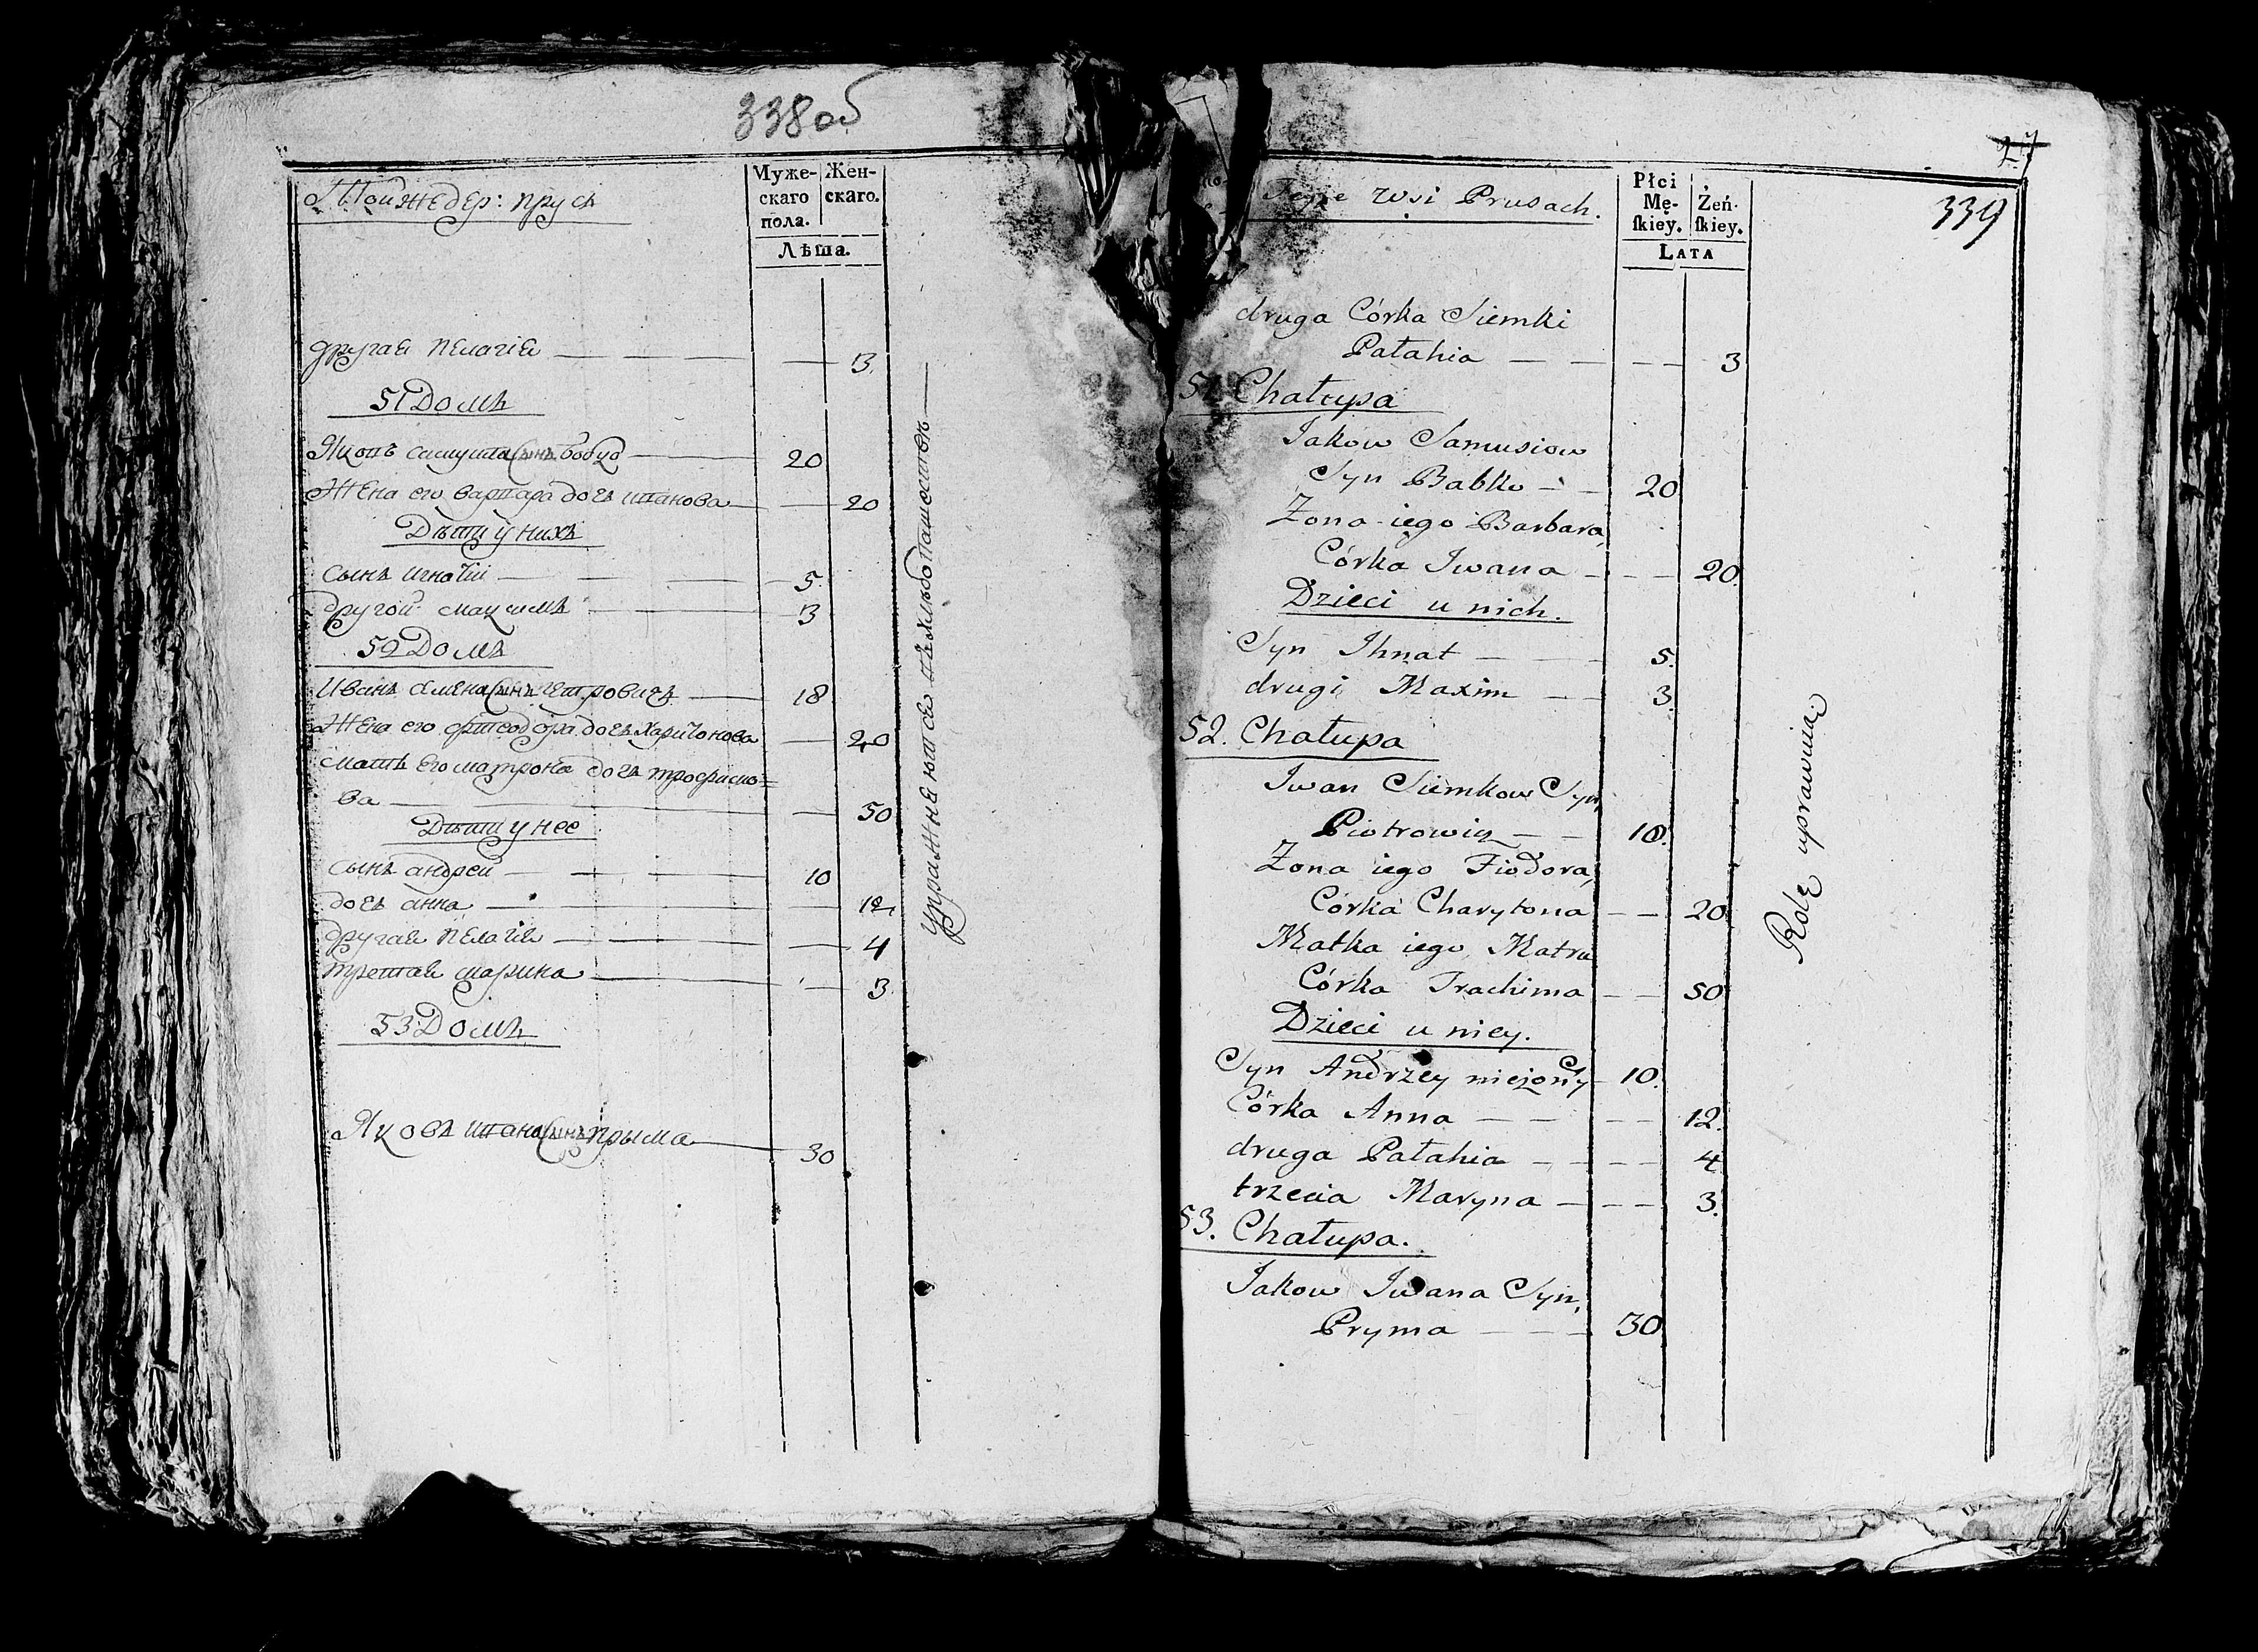 338 об
Тойже дер: прусъ
Муже-
скаго
пола.
Жен-
скаго.
Лѣта.
другая пелагiя — — — — 3
51 Домъ
Яковъ самуила сынъ бобко — 20
Жена его варвара дочь иванова — 20
Дѣти у нихъ
сынъ игнатiй — — — 5
другой мацимъ — — 3
52 Домъ
Иванъ семена сынъ петровичъ — 18
Жена его феодора дочь харитонова — 20
мать его матрона дочь трофимо=
ва — — — 50
Дѣти у нее
сынъ андрей — — — 10
дочь анна — — — 12
другая пелагiя — — — 4
третая марина — — 3
53 Домъ
Яковъ ивана сынъ прыма — 30
упражняются въ хлебопашествѣ —
27
339
Teyże wsi Prusach.
Płci
Mę-
ſkiey.
Żeń-
ſkiey.
LATA
druga Córka Siemki
Pałahia — — — — 3
51. Chałupa
Jakow Samusiow
Syn Babko — — 20
Zona iego Barbara,
Córka Iwana — — — 20.
Dzieci u nich.
Syn Ihnat — — 5.
drugi Maxim — — 3.
52. Chałupa
Iwan Siemkow Syn,
Piotrowicz — — 18.
Zona iego Fiodora,
Córka Charytona — — 20
Matka iego, Matru
Córka Trachima — — 50
Dzieci u niey.
Syn Andrzey nieżonŷ — 10.
Córka Anna — — — — 12.
druga Pałahia — — — — 4
trzecia Maryna — — — 3.
53. Chałupa.
Jakow Iwana Syn,
Pryma — — — 30.
Rolę uprawiaią